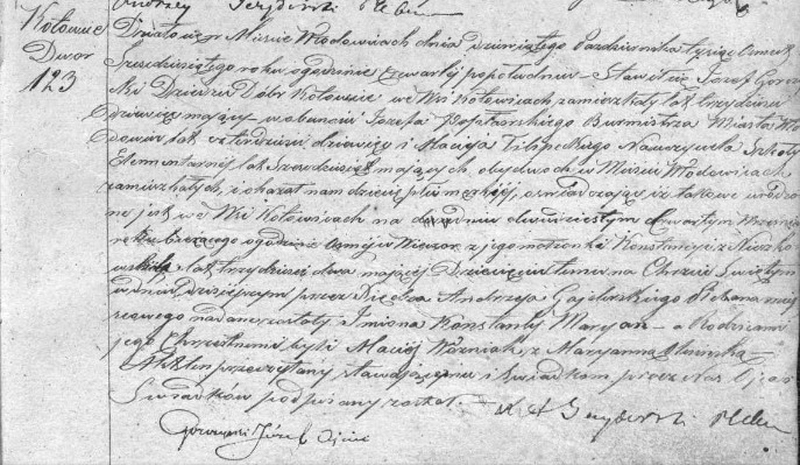 Andrzey Pleban
Kotowice
Dwor
123
Działo się w Mieście Włodowicach dnia dziewiątego Października tysiąc Osmset
Sześdziesiątego roku o godzinie czwartej popołudniu – Stawił się Jozef Gorcz
ki Dzierżawca Dobr Kotowice, we Wsi Kotowicach zamieszkały lat trzydzieści
Dziewięć mający – w obecności Jozefa Burmistrza Miasta Wło
dowic lat czterdzieści dziewięć i Macieja Filipeckiego Nauczyciela Szkoły
Elementarnej lat Szesdziesiąt mających, obydwoch w Mieście Włodowicach
zamieszkałych, i okazał nam dziecię płci męzkiej, oświadczając iż takowe urodzo
ne jest we Wsi Kotowicach na dniu dwudziestym Czwartym Września
roku bieżącego o godzinie Osmej w Wieczor z jego małżonki Konstancyi z
lat trzydzieści dwa mającej Dziecięciu temu na Chrzcie Świętym
w dniu dzisiejszym przez Xiędza Andrzeja Plebana miej
scowego nadane zostały Imiona Konstanty Maryan – a Rodzicami
jego Chrzestnemi byli Maciej Wozniak, z Maryanną
Akt ten przeczytany stawającemu i Świadkom, przez Nas Ojca i
Świadków podpisany został. – X A Pleban
Józef Ojciec